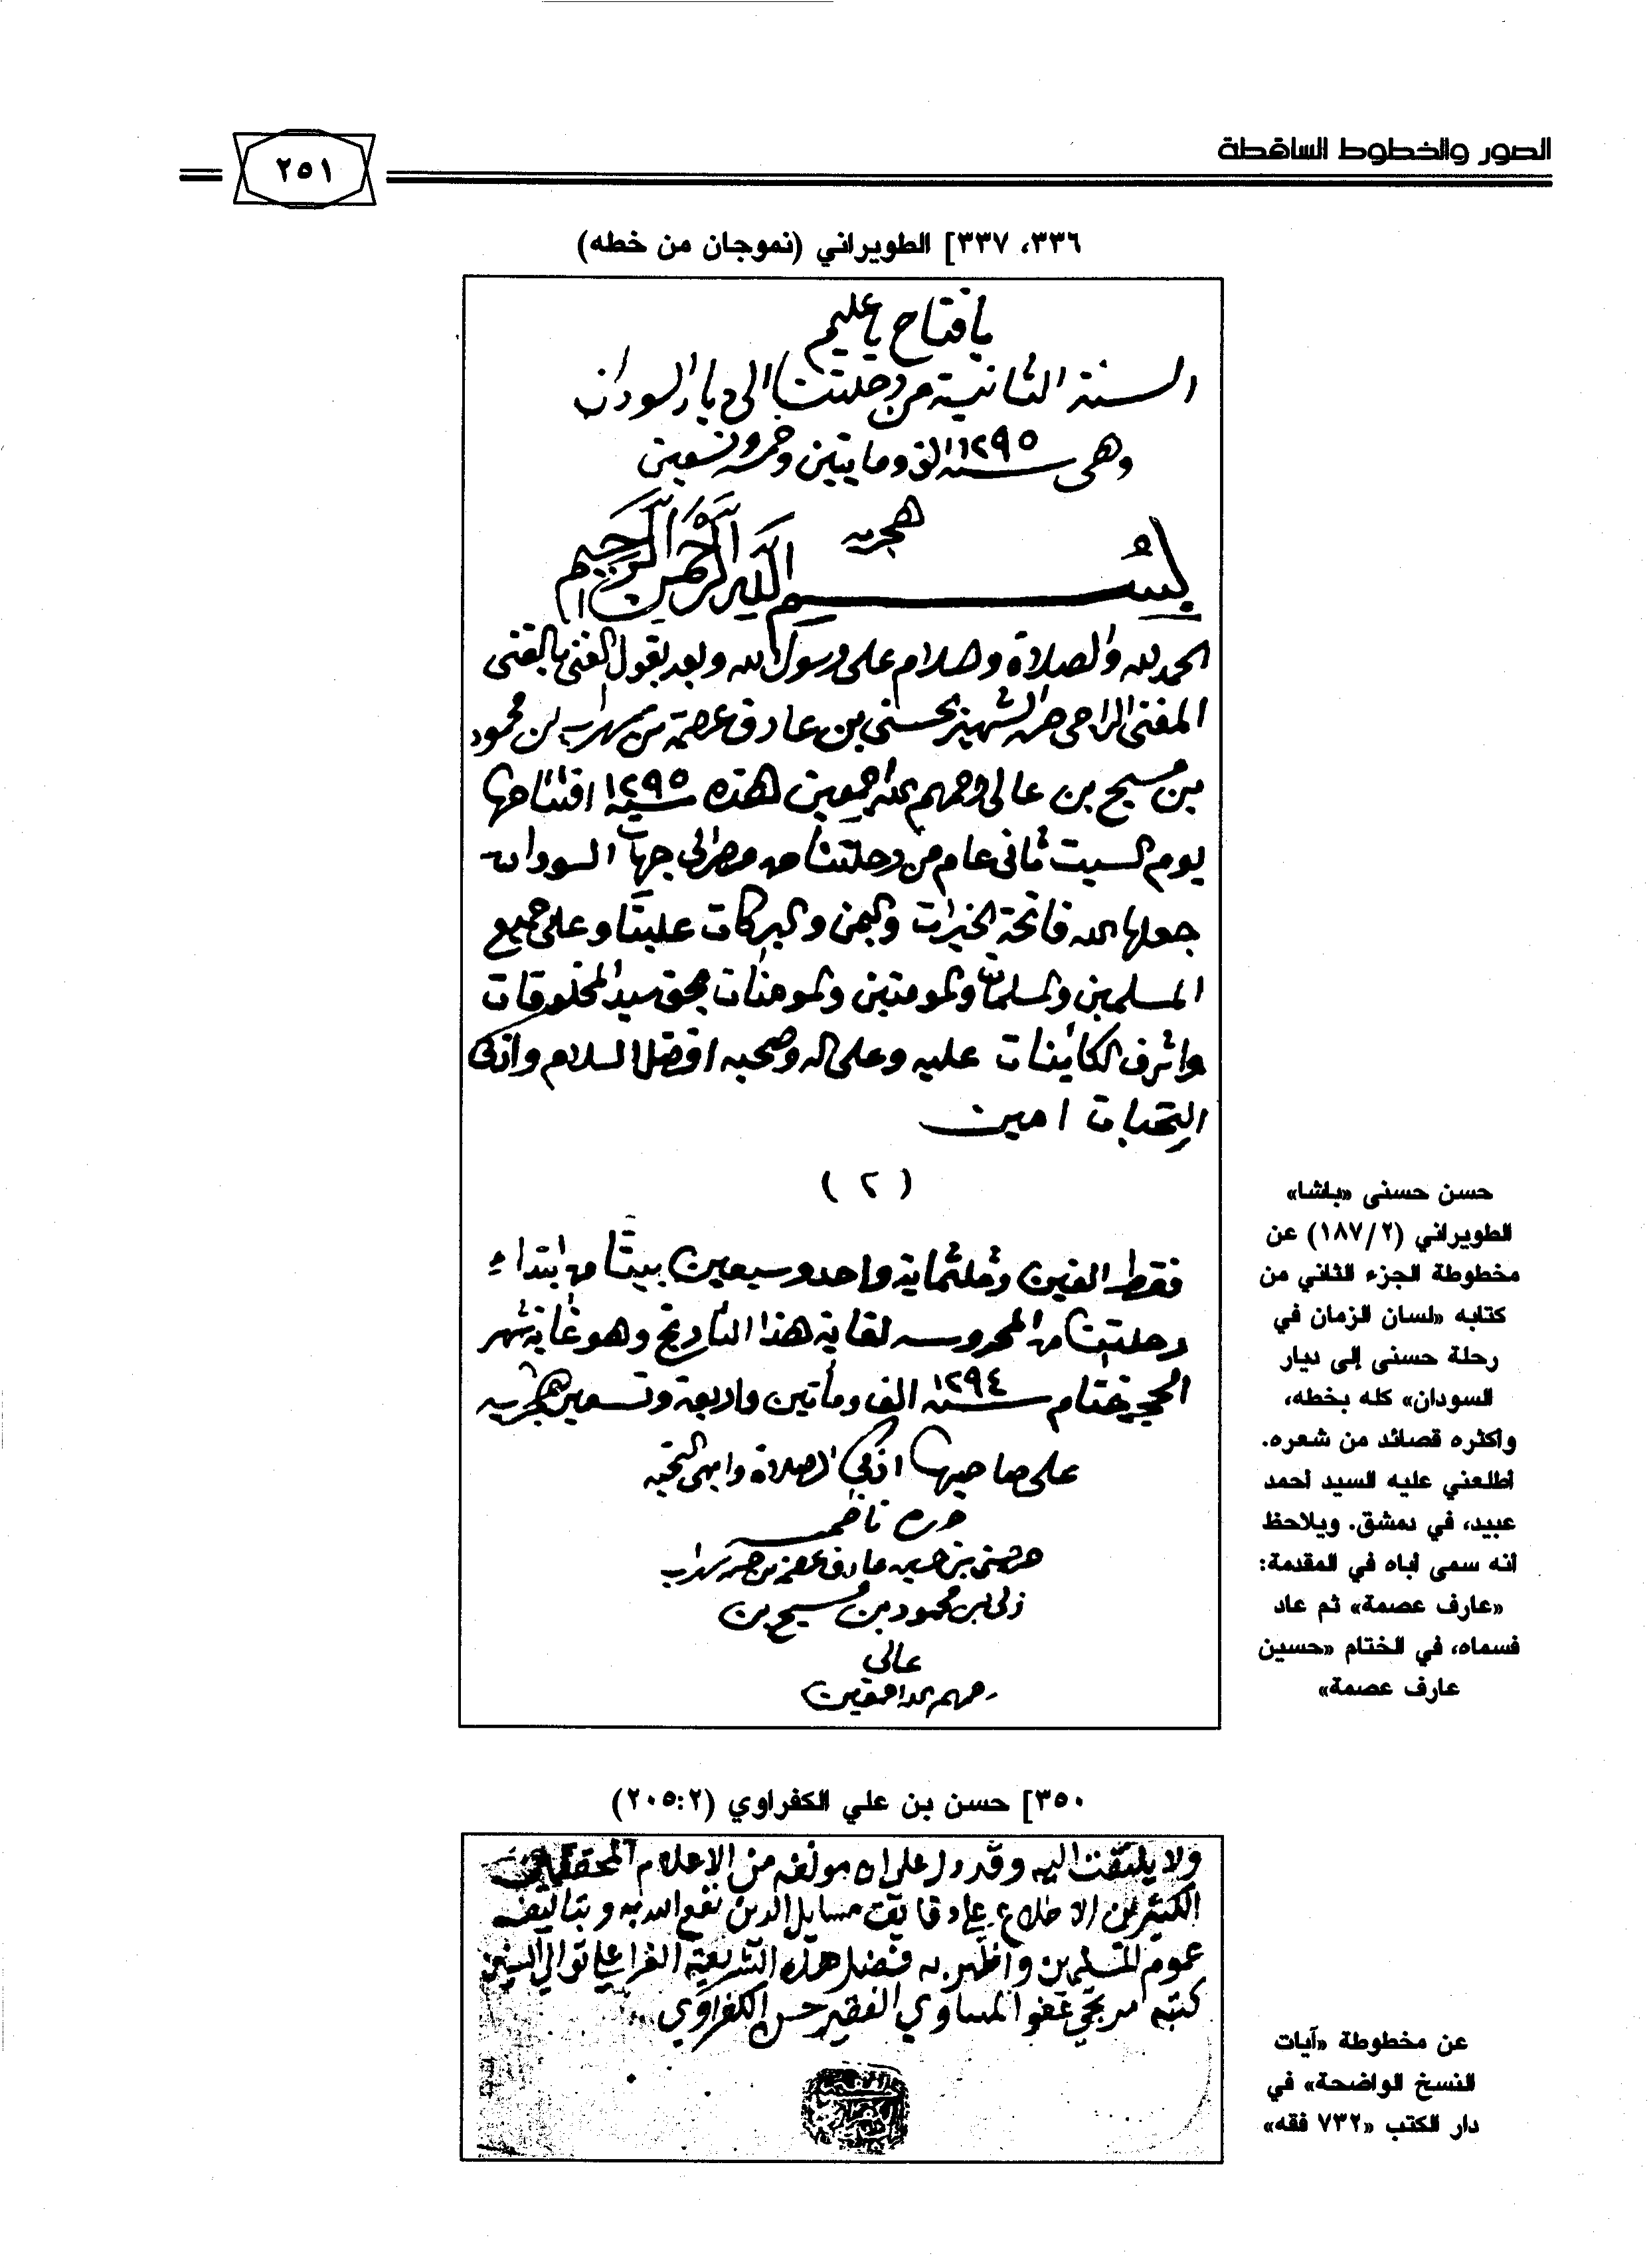 الصور والخطوط الساقطة
٢٥١
٣٣٦، ٣٣٧] الطويراني (نموجان من خطه)
يافتاح ياعليم
السنة الثانية من رحلتنا الى ديار السودان
وهى سنة ١٢٩٥ الف ومايتين وخمسه وتسعين
هجريه
بسم الله الرحمن الرحيم
الحمد لله والصلاة والسلام على رسول الله وبعد يقول
حسنى بن عارف عصمة بن سهراب بن محمود
بن مسيح بن عالى رحمهم الله اجمعين هذه سنة ١٢٩٥ افتتاحها
يوم السبت ثانى عام من رحلتنا من مصر الى جهات السودان
جعلها الله فاتحة الخيرات واليمن والبركات علينا وعلى جميع
المسلمين والمسلمات والمومنين والمومنات بحق سيد المخلوقات
واشرف الكاينات عليه وعلى اله وصحبه افضل السلام وازكى
التحيات امين
(٢)
فقط الفين وثلثماية واحد وسبعين بيتا من ابتداء
رحلتنا من المحروسه لغاية هذا التاريخ وهو غاية شهر
الحجه ختام سنة ١٢٩٤ الف ومأتين واربعة وتسعين هجريه
على صاحبها ازكى الصلاة وابهى التحيه
حرره ناظمه
حسنى بن حسين عارف عصمة بن حسن سهراب
زلى بن محمود بن مسيح بن
عالى
رحمهم الله اجمعين
حسن حسنى «باشا»
الطويراني (١٨٧/٢) عن
مخطوطة الجزء الثاني من
كتابه «لسان الزمان في
رحلة حسنى إلى ديار
السودان» كله بخطه،
وأكثره قصائد من شعره.
أطلعني عليه السيد أحمد
عبيد، في دمشق. ويلاحظ
أنه سمى أباه في المقدمة:
«عارف عصمة» ثم عاد
فسماه، في الختام «حسين
عارف عصمة»
٣٥٠] حسن بن علي الكفراوي (٢٠٥:٢)
ولا يلتفت اليه وقد دل على ان مولفه من الاعلام المحققين
الكثيرين الاطلاع على دقايق مسايل الدين نفع الله به وبتاليفه
عموم المسلمين واظهر به فضل هذه الشريعة الغرا على توالي السنين
كتبه مرتجي عفو المساوي الفقير حسن الكفراوي
عن مخطوطة «آيات
النسخ الواضحة» في
دار الكتب «٧٣٢ فقه»